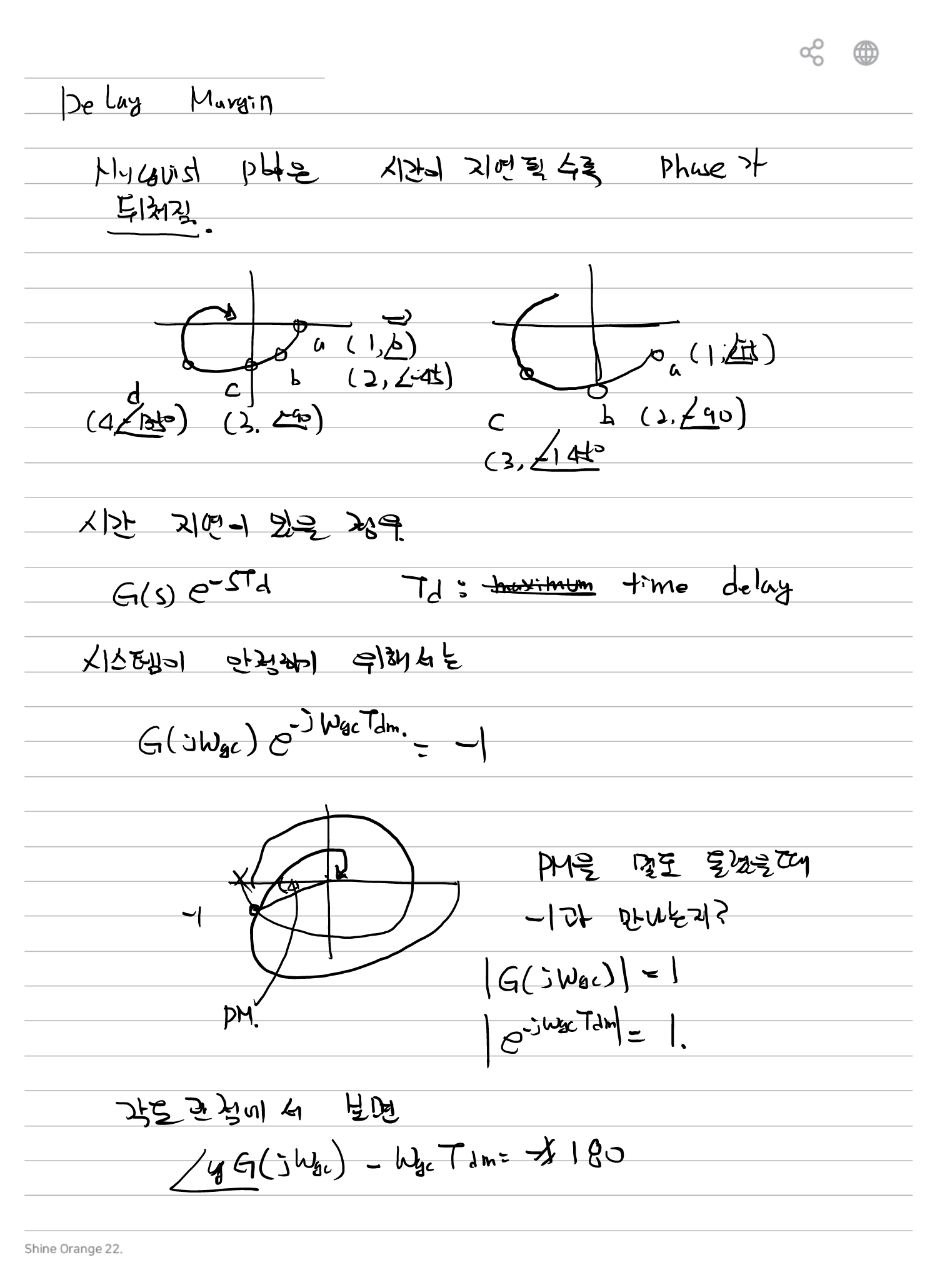 Delay Margin
Nyquist plot은 시간이 지연될 수록 Phase가
뒤쳐짐.
a (1, ∠0)
b (2, ∠-45)
c (3, ∠-90)
d (4, ∠-135°)
a (1, ∠-45)
b (2, ∠-90)
c (3, ∠-145°
시간 지연이 있을 경우
G(s) e^{-sTd} Td : maximum time delay
시스템이 안정하기 위해서는
G(jWgc) e^{-jWgcTdm.} = -1
PM을 몇도 돌렸을때
-1과 만나는지?
-1
|G(jWgc)| = 1
|e^{-jWgcTdm}| = 1.
PM.
각도 관점에서 보면
∠G(jWgc) - WgcTdm = 180
Shine Orange 22.